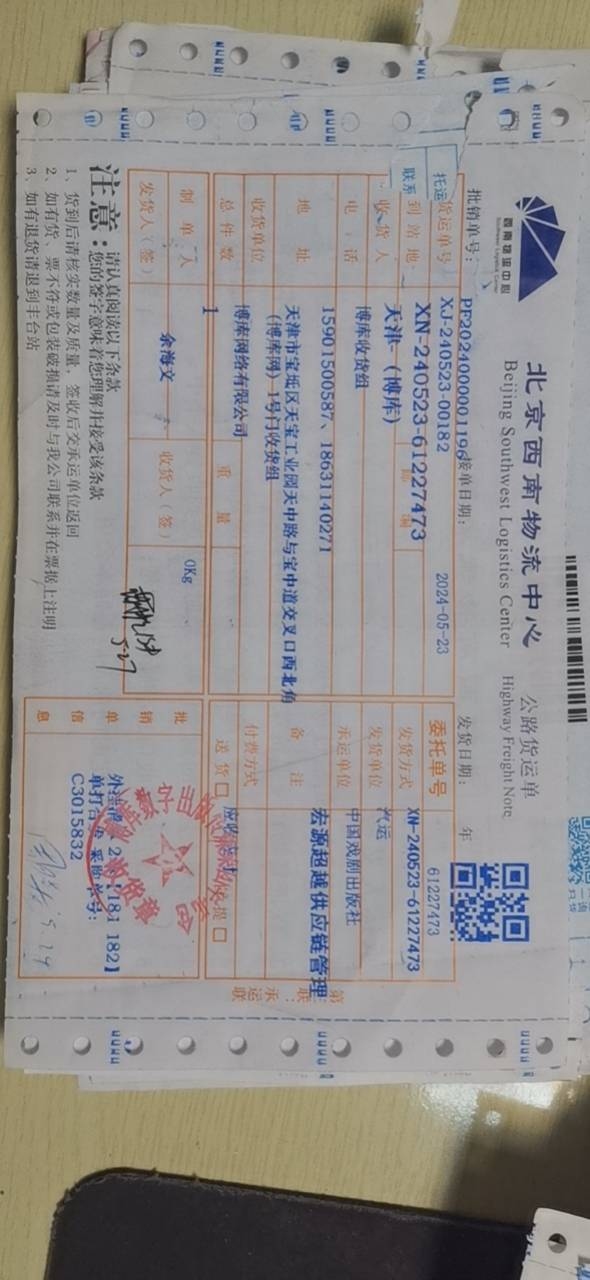 西南物流中心
Southwest Logistics Center
北京西南物流中心 公路货运单
Beijing Southwest Logistics Center Highway Freight Note
批销单号: PF2024000001196 接单日期: 2024-05-23 发货日期: 年
托运 货运单号 XJ-240523-00182 委托单号 61227473
联系
XN-240523-61227473 XN-240523-61227473
到站地 天津-（博库） 发货方式 汽运
收货人 博库收货组 发货单位 中国戏剧出版社
电话 15901500587、18631140271 承运单位 宏源超越供应链管理
地址 天津市宝坻区天宝工业园天中路与宝中道交叉口西北角（博库网）1号门收货组 备注
收货单位 博库网络有限公司 付费方式
总件数 1 重量 0Kg 送货 □ □
制单人 余海文 收货人（签） 5-27
发货人（签）
批销单信息
C3015832
5.29
第 联：承运联
注意：
请认真阅读以下条款
您的签字意味着您理解并接受该条款
1、货到后请核实数量及质量，签收后交承运单位返回
2、如有货、票不符或包装破损请及时与我公司联系并在票据上注明
3、如有退货请退到丰台站